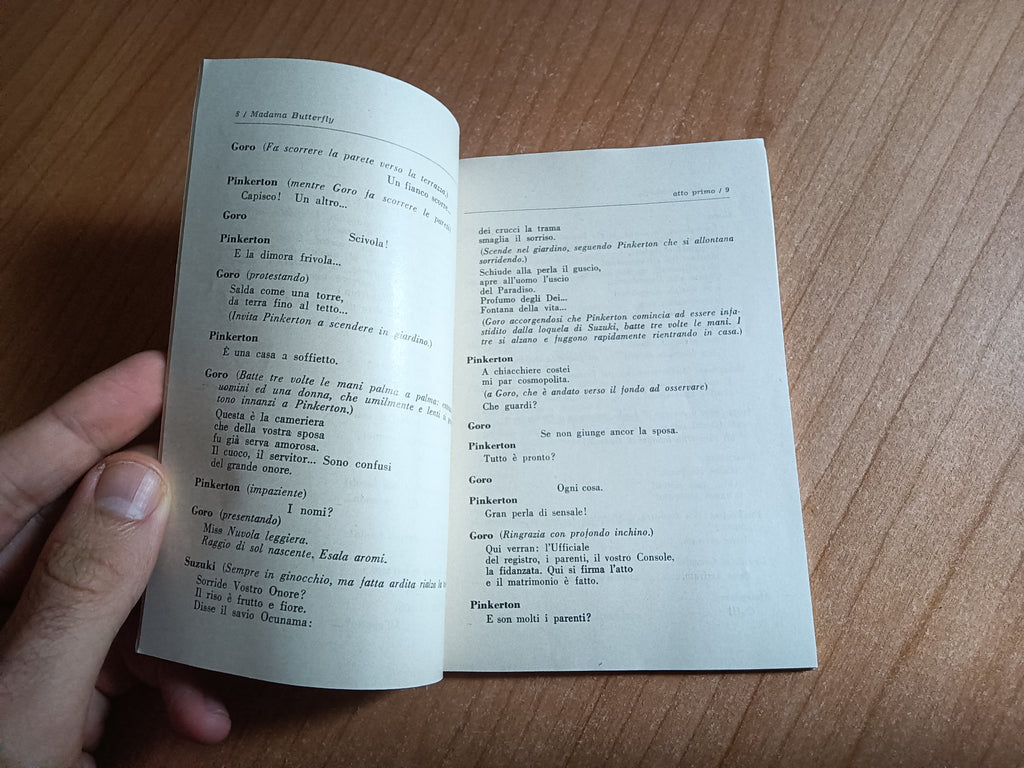 8 / Madama Butterfly
Goro (Fa scorrere la parete verso la terrazza.)
Un fianco scorre...
Pinkerton (mentre Goro fa scorrere le pareti)
Capisco! Un altro...
Goro
Scivola!
Pinkerton
E la dimora frivola...
Goro (protestando)
Salda come una torre,
da terra fino al tetto...
(Invita Pinkerton a scendere in giardino.)
Pinkerton
È una casa a soffietto.
Goro (Batte tre volte le mani palma a palma:
uomini ed una donna, che umilmente e lenti, si
tono innanzi a Pinkerton.)
Questa è la cameriera
che della vostra sposa
fu già serva amorosa.
Il cuoco, il servitor... Sono confusi
del grande onore.
Pinkerton (impaziente)
I nomi?
Goro (presentando)
Miss Nuvola leggiera.
Raggio di sol nascente, Esala aromi.
Suzuki (Sempre in ginocchio, ma fatta ardita rialza la
Sorride Vostro Onore?
Il riso è frutto e fiore.
Disse il savio Ocunama:
atto primo / 9
dei crucci la trama
smaglia il sorriso.
(Scende nel giardino, seguendo Pinkerton che si allontana
sorridendo.)
Schiude alla perla il guscio,
apre all'uomo l'uscio
del Paradiso.
Profumo degli Dei...
Fontana della vita...
(Goro accorgendosi che Pinkerton comincia ad essere infa-
stidito dalla loquela di Suzuki, batte tre volte le mani. I
tre si alzano e fuggono rapidamente rientrando in casa.)
Pinkerton
A chiacchiere costei
mi par cosmopolita.
(a Goro, che è andato verso il fondo ad osservare)
Che guardi?
Goro
Se non giunge ancor la sposa.
Pinkerton
Tutto è pronto?
Goro
Ogni cosa.
Pinkerton
Gran perla di sensale!
Goro (Ringrazia con profondo inchino.)
Qui verran: l'Ufficiale
del registro, i parenti, il vostro Console,
la fidanzata. Qui si firma l'atto
e il matrimonio è fatto.
Pinkerton
E son molti i parenti?